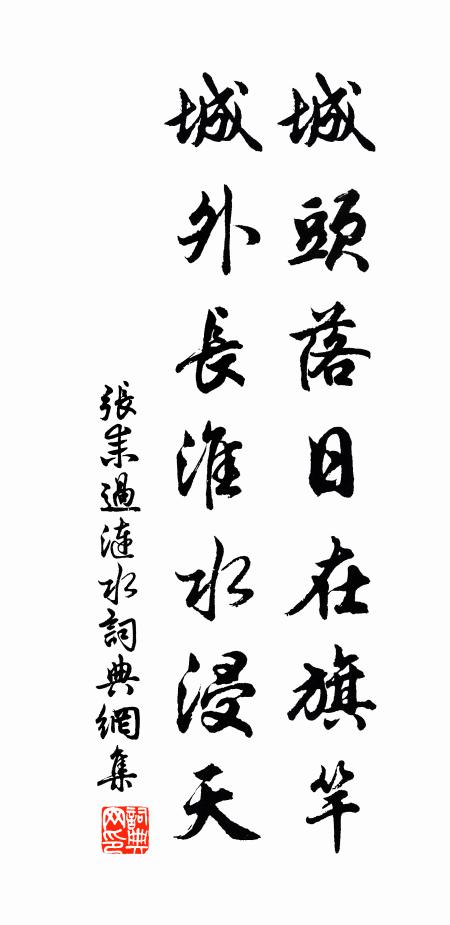 城頭落日在旗竿
城外長淮水浸天
張耒過漣水詞典網集
詞典网印